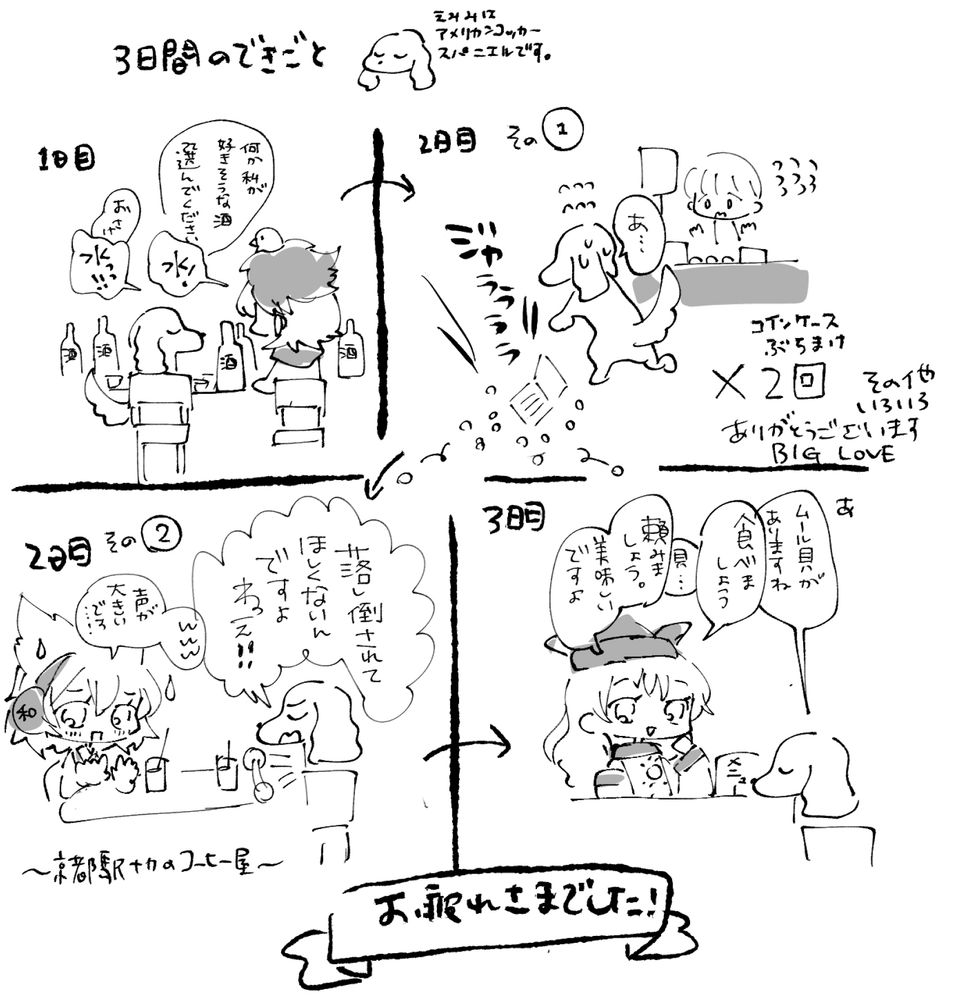 3日間のできごと
えみみは
アメリカンコッカー
スパニエルです。
1日目
何か私が
好きそうな酒
選んでください
水!
おさけ
水っっ!!!
酒
酒
酒
酒
2日目 その①
あ…
ジャラララララ!!
コインケース
ぶちまけ
×2回
その他
いろいろ
ありがとうございます
BIG LOVE
2日目 その②
落とし倒されて
ほしくないん
ですよ
ねっえ!!
www
声が
大きい
…でろ
和
〜京都駅ナカのコーヒー屋〜
3日目
あ
ムール貝が
ありますね
食べま
しょう
貝…
頼みま
しょう。
美味しい
ですよ
メニュー
お疲れさまでした!